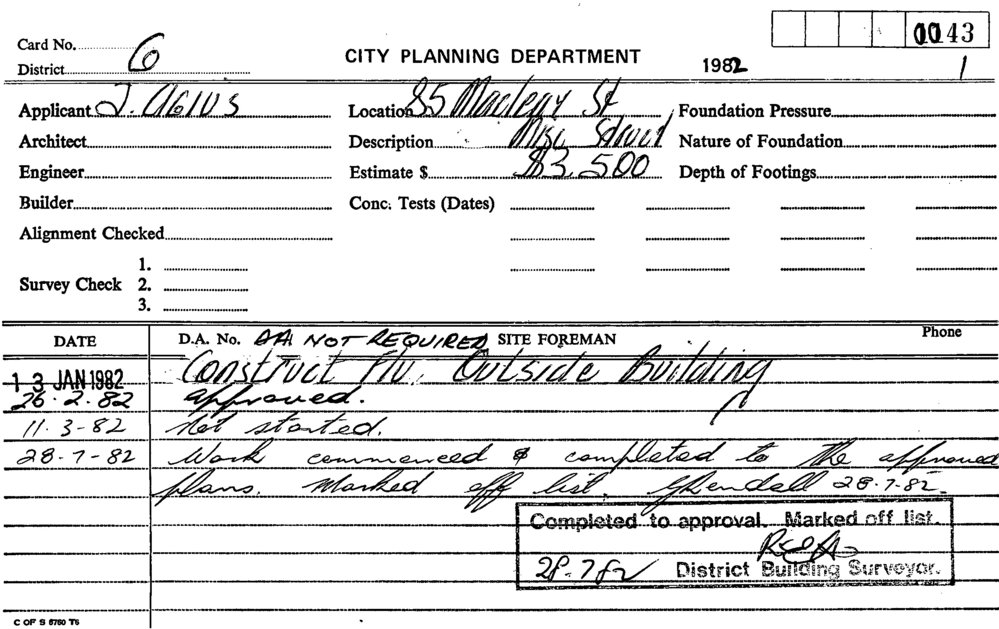 0043
Card No. 6
District
CITY PLANNING DEPARTMENT
1982 1
Applicant J. AGIUS Location 85 Macleay St Foundation Pressure
Architect Description Misc Nature of Foundation
Engineer Estimate $ $3,500 Depth of Footings
Builder Conc. Tests (Dates)
Alignment Checked
1.
Survey Check 2.
3.
DATE D.A. No. DA NOT REQUIRED SITE FOREMAN Phone
13 JAN 1982 Construct Flu. Outside Building
26.2.82 approved.
11.3-82 Not started.
28-7-82 Work commenced & completed to the approved
plans. Marked off list. 28.7.82.
Completed to approval. Marked off list.
28.7 82 District Building Surveyor.
C OF S 5760 T6